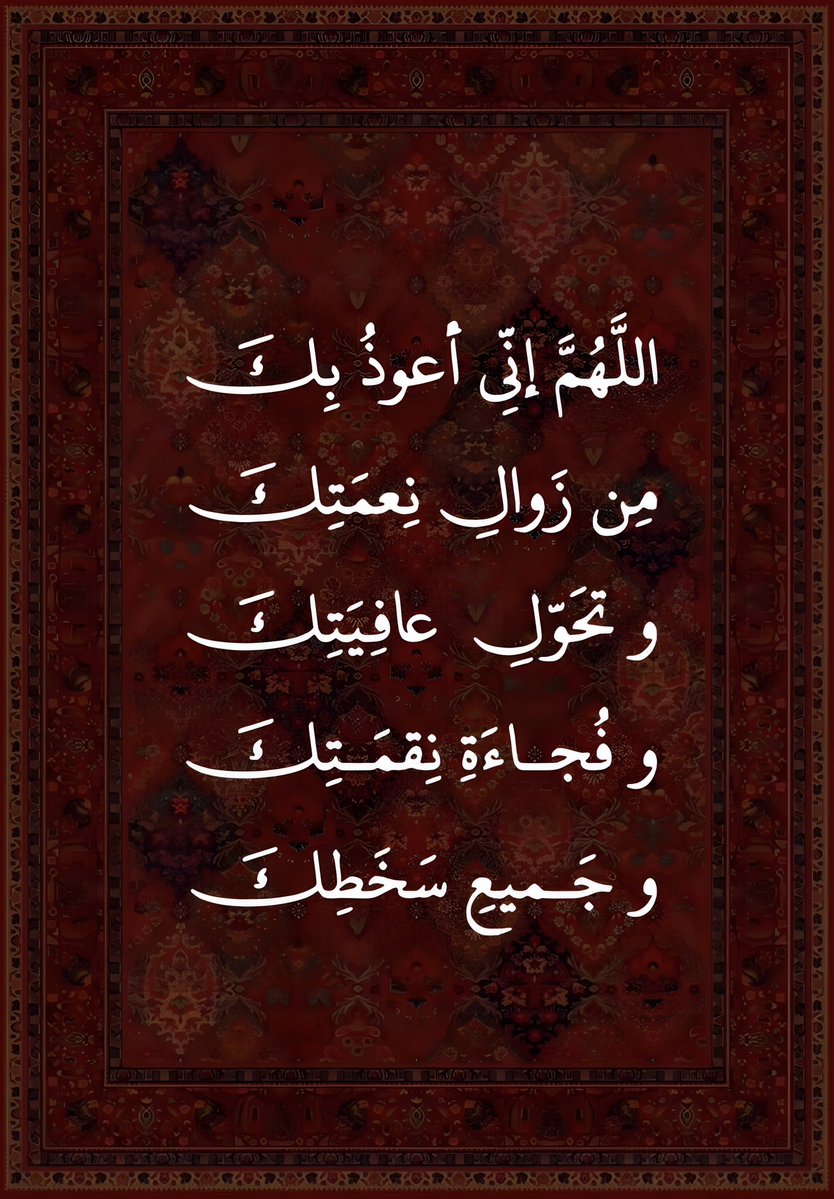 اللَّهُمَّ إنِّي أعوذُ بِكَ
مِن زَوالِ نِعمَتِكَ
و تحَوّلِ عافِيَتِكَ
و فُجاءَةِ نِقمَتِكَ
و جَميعِ سَخَطِكَ